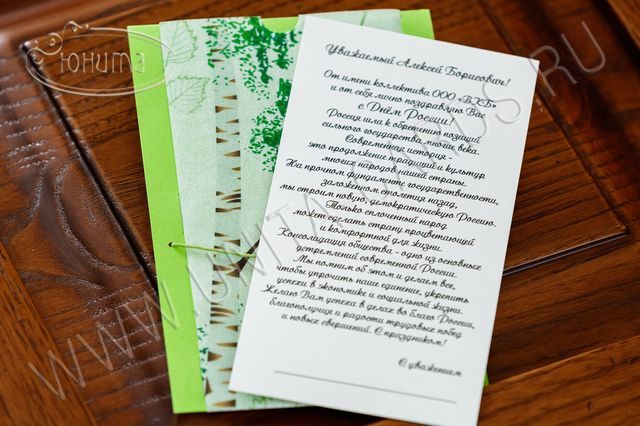 Юнита
Уважаемый Алексей Борисович!
От имени коллектива ООО «ВКБ»
и от себя лично поздравляю Вас
с Днём России!
Россия шла к обретению позиций
сильного государства многие века.
Современная история -
это продолжение традиций и культур
многих народов нашей страны.
На прочном фундаменте государственности,
заложенном столетия назад,
мы строим новую, демократическую Россию.
Только сплоченный народ
может сделать страну процветающей
и комфортной для жизни.
Консолидация общества - одно из основных
устремлений современной России.
Мы помним об этом и делаем все,
чтобы упрочить наше единение, укрепить
успехи в экономике и социальной жизни.
Желаю Вам успеха в делах во благо России,
благополучия и радости трудовых побед
и новых свершений. С праздником!
С уважением